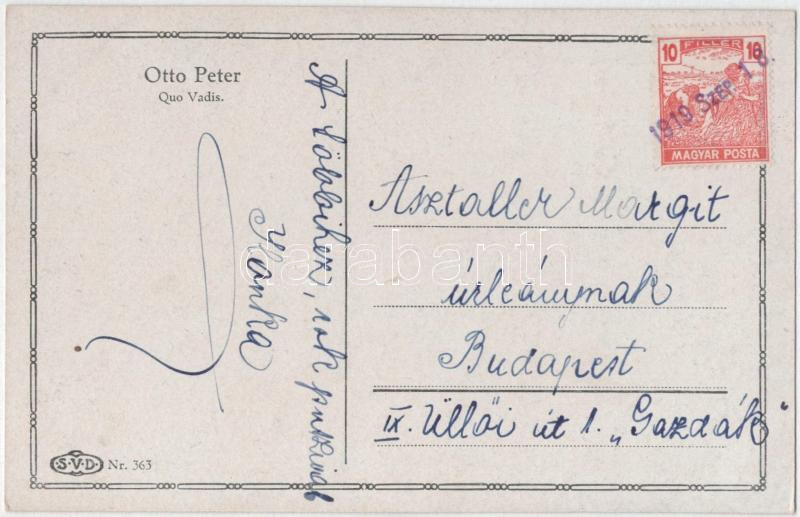 Otto Peter
Quo Vadis.
A többihez, sok puszival
Ilonka
10 FILLÉR 10
MAGYAR POSTA
1919 SZEP. 18.
Asztaller Margit
úrleánynak
Budapest
IX. Üllői út 1. „Gazdák"
S.V.D. Nr. 363
darabanth